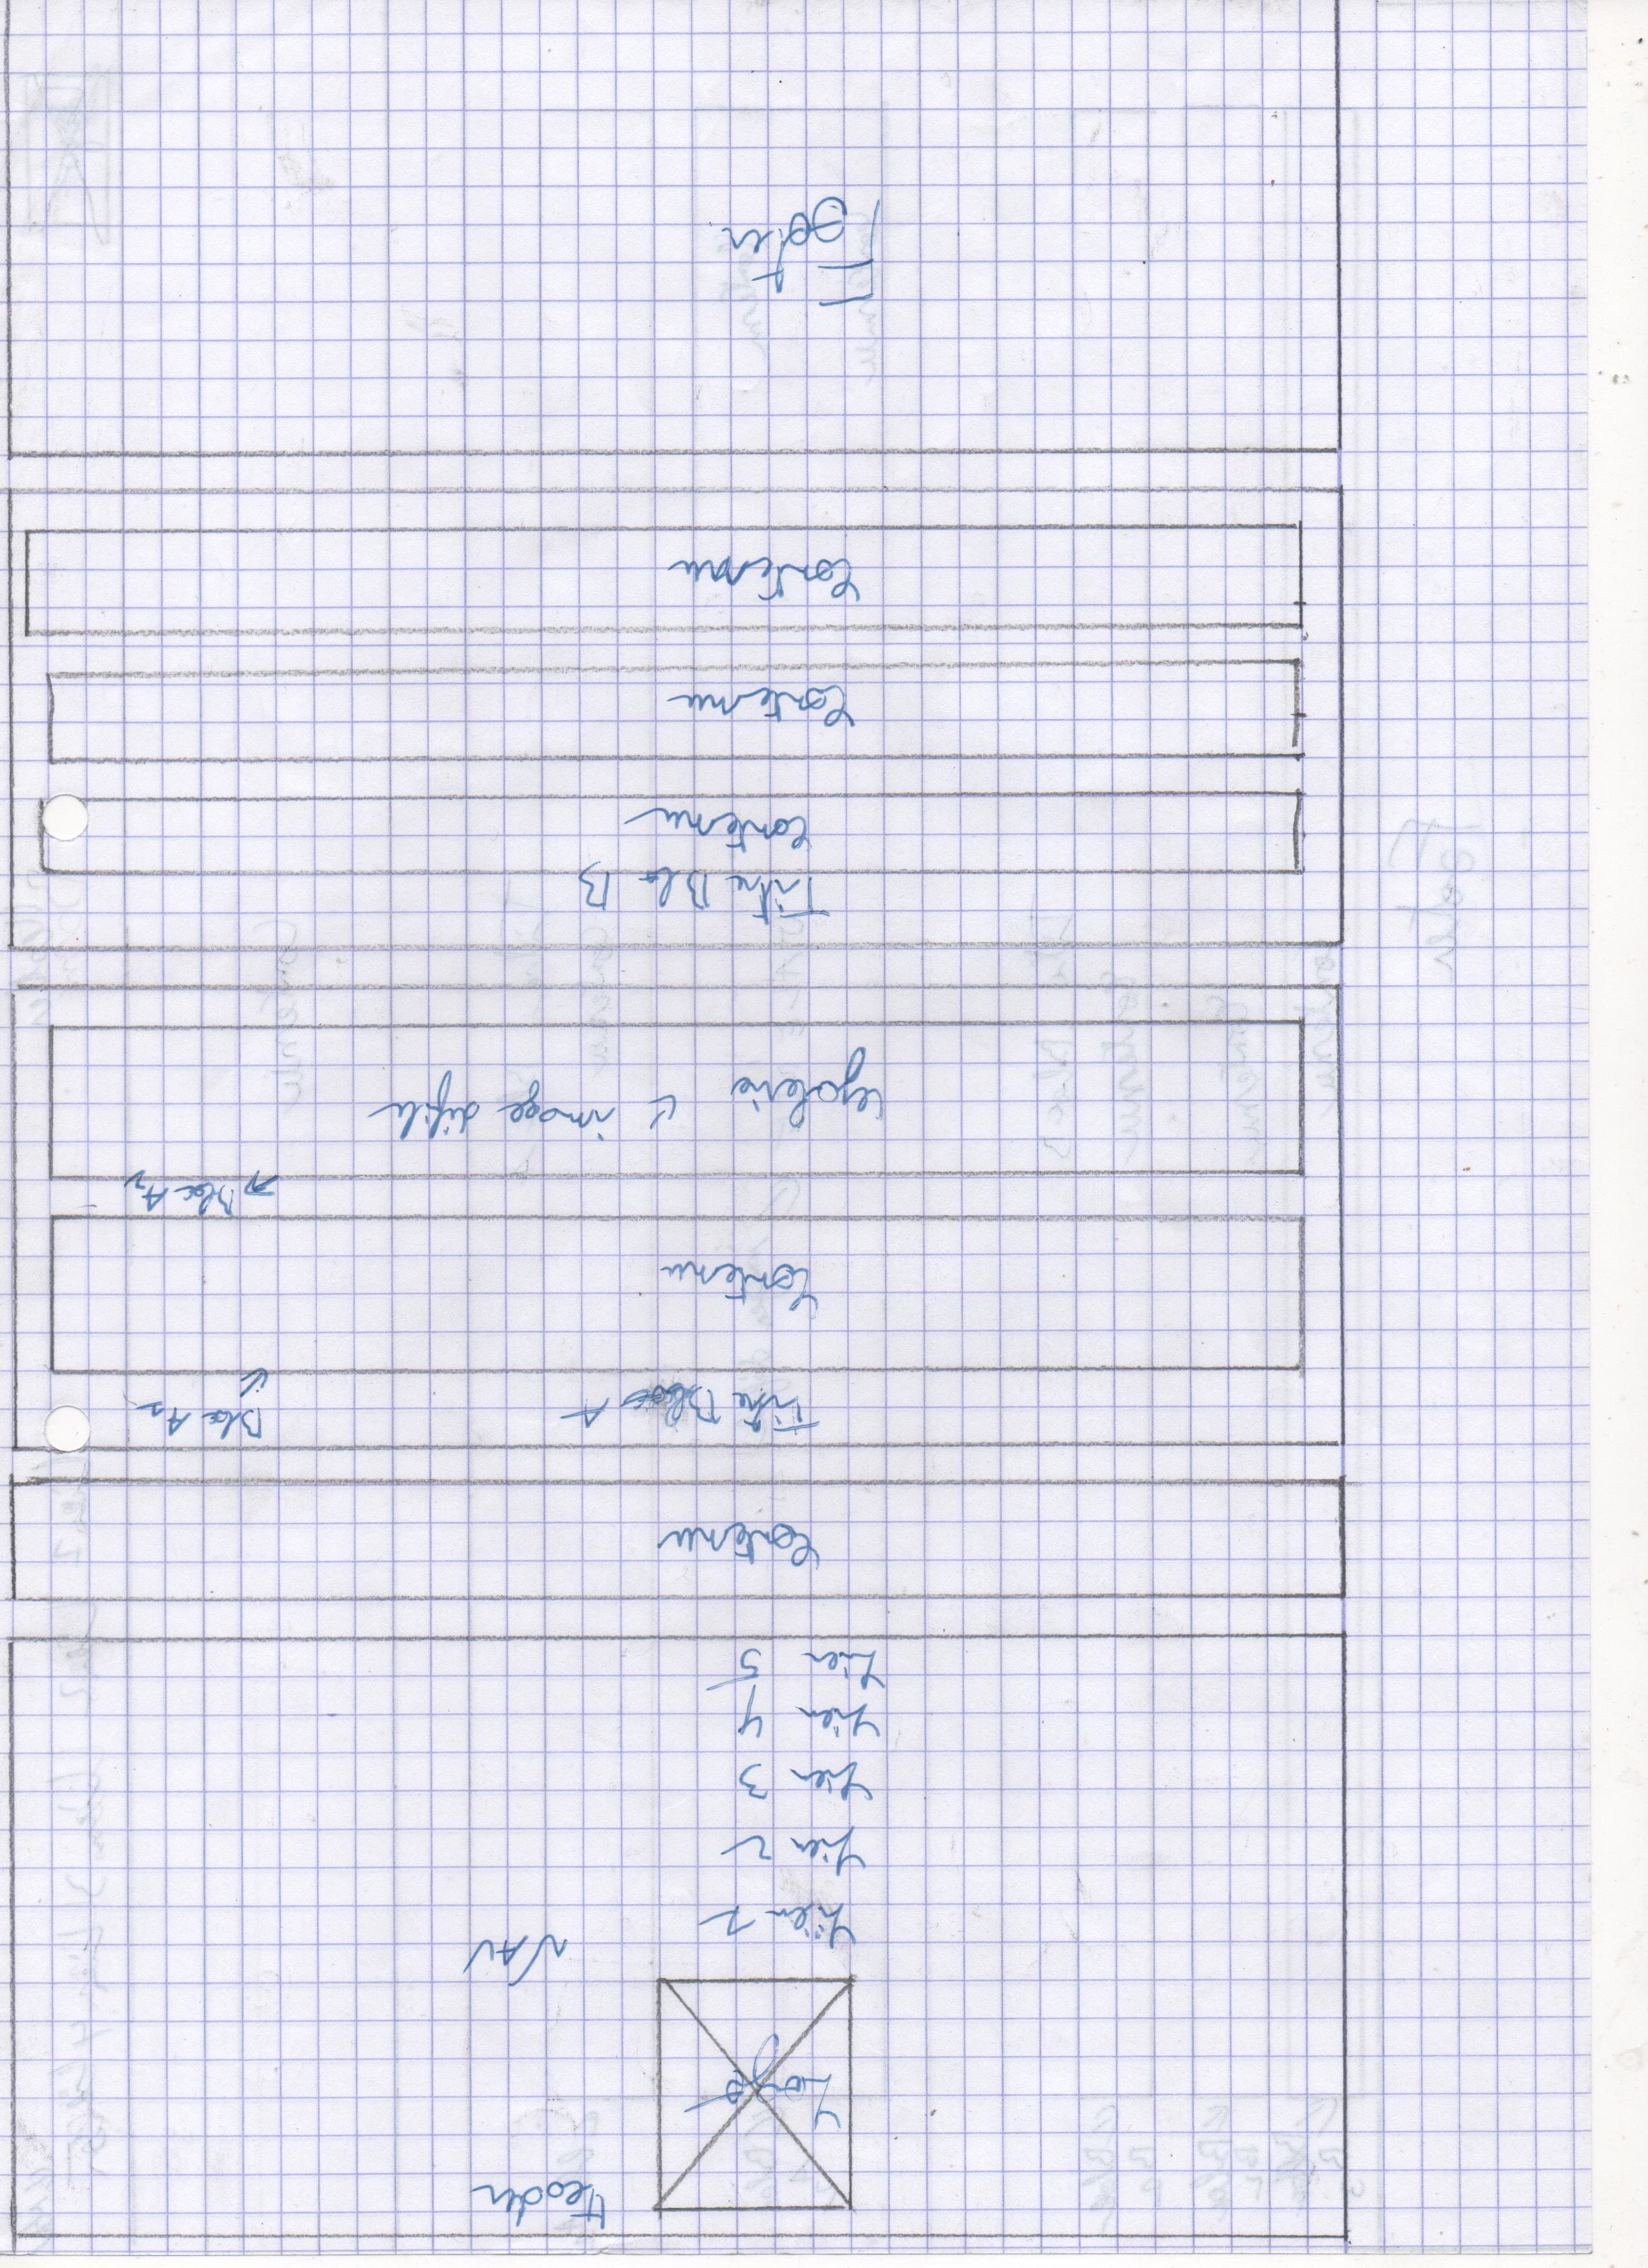 Header
Logo
NAV
Lien 1
Lien 2
Lien 3
Lien 4
Lien 5
Contenu
Titre Bloc A
Bloc A1
Contenu
Bloc A2
Galerie ← image défile
Titre Blo B
Contenu
Contenu
Contenu
Footer